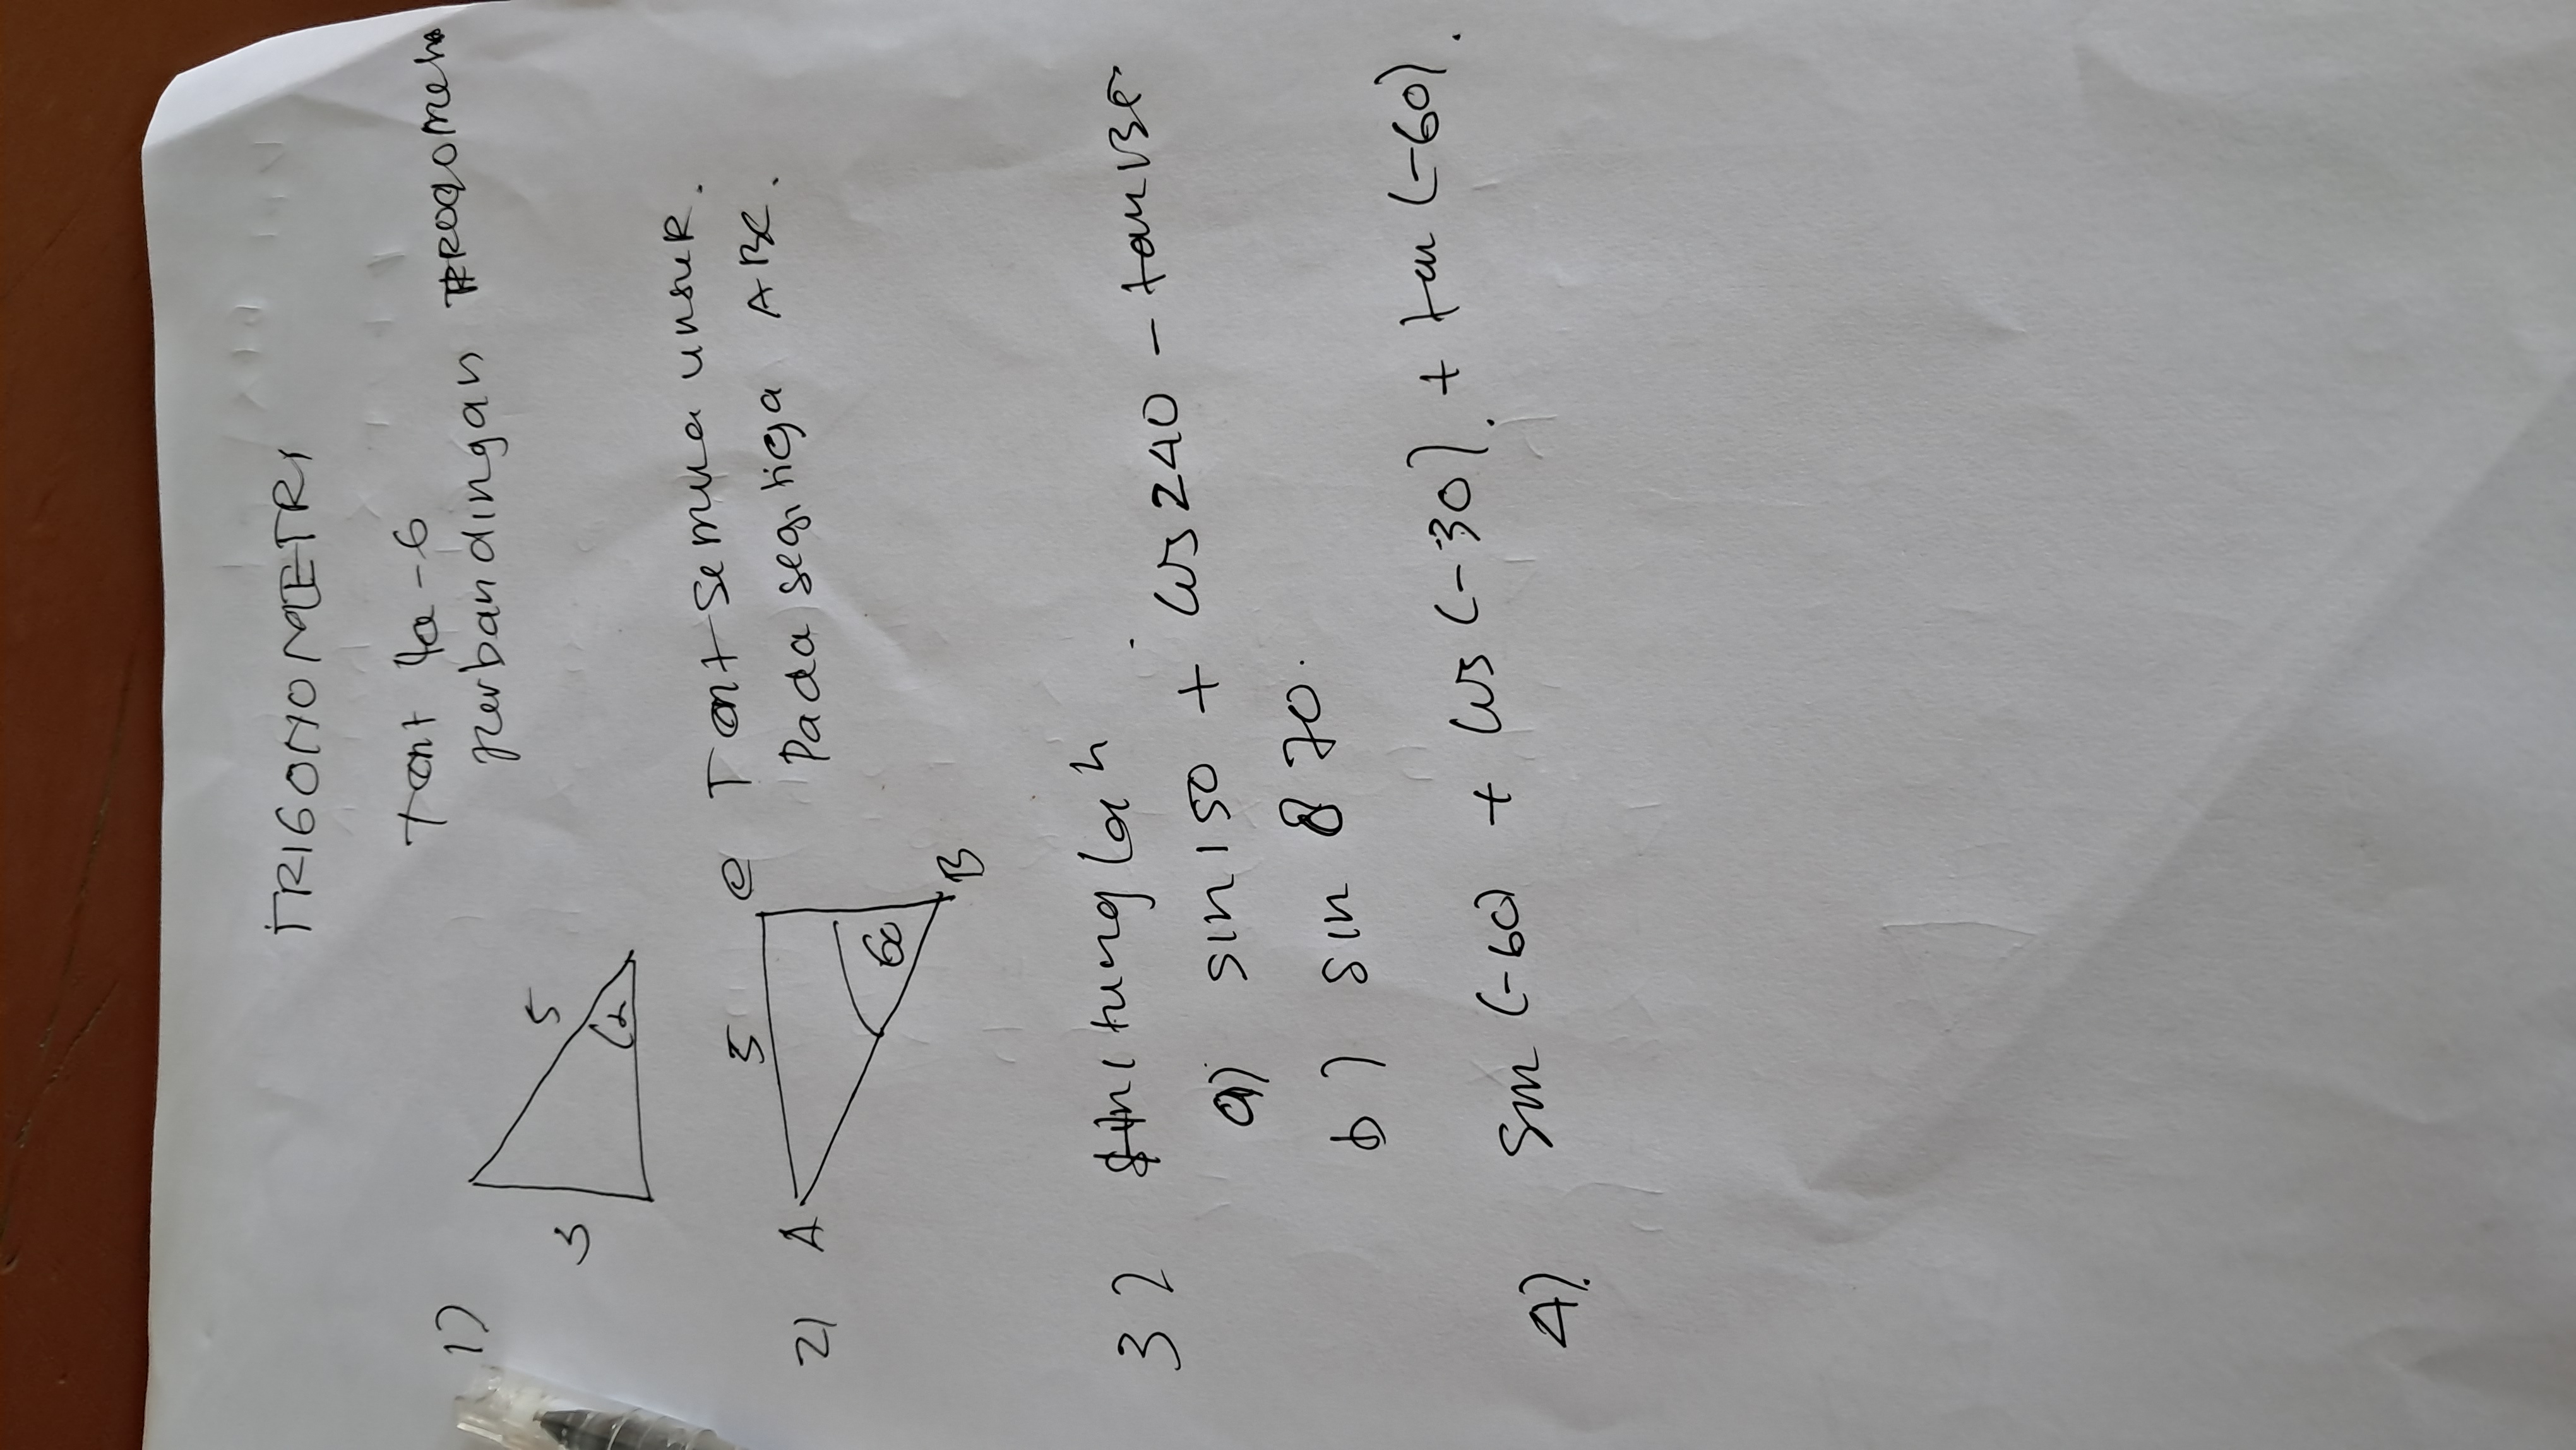 TRIGONOMETRI
Tent 4a-6
perbandingan
1)
3
5
α
2)
A
5
C
60
B
Tent semua unsur.
Pada segitiga ABC.
3) Hitunglah
a) sin 150 + cos 240 - tan 135
b) sin 870.
4). sin (-60) + cos (-30). + tan (-60).